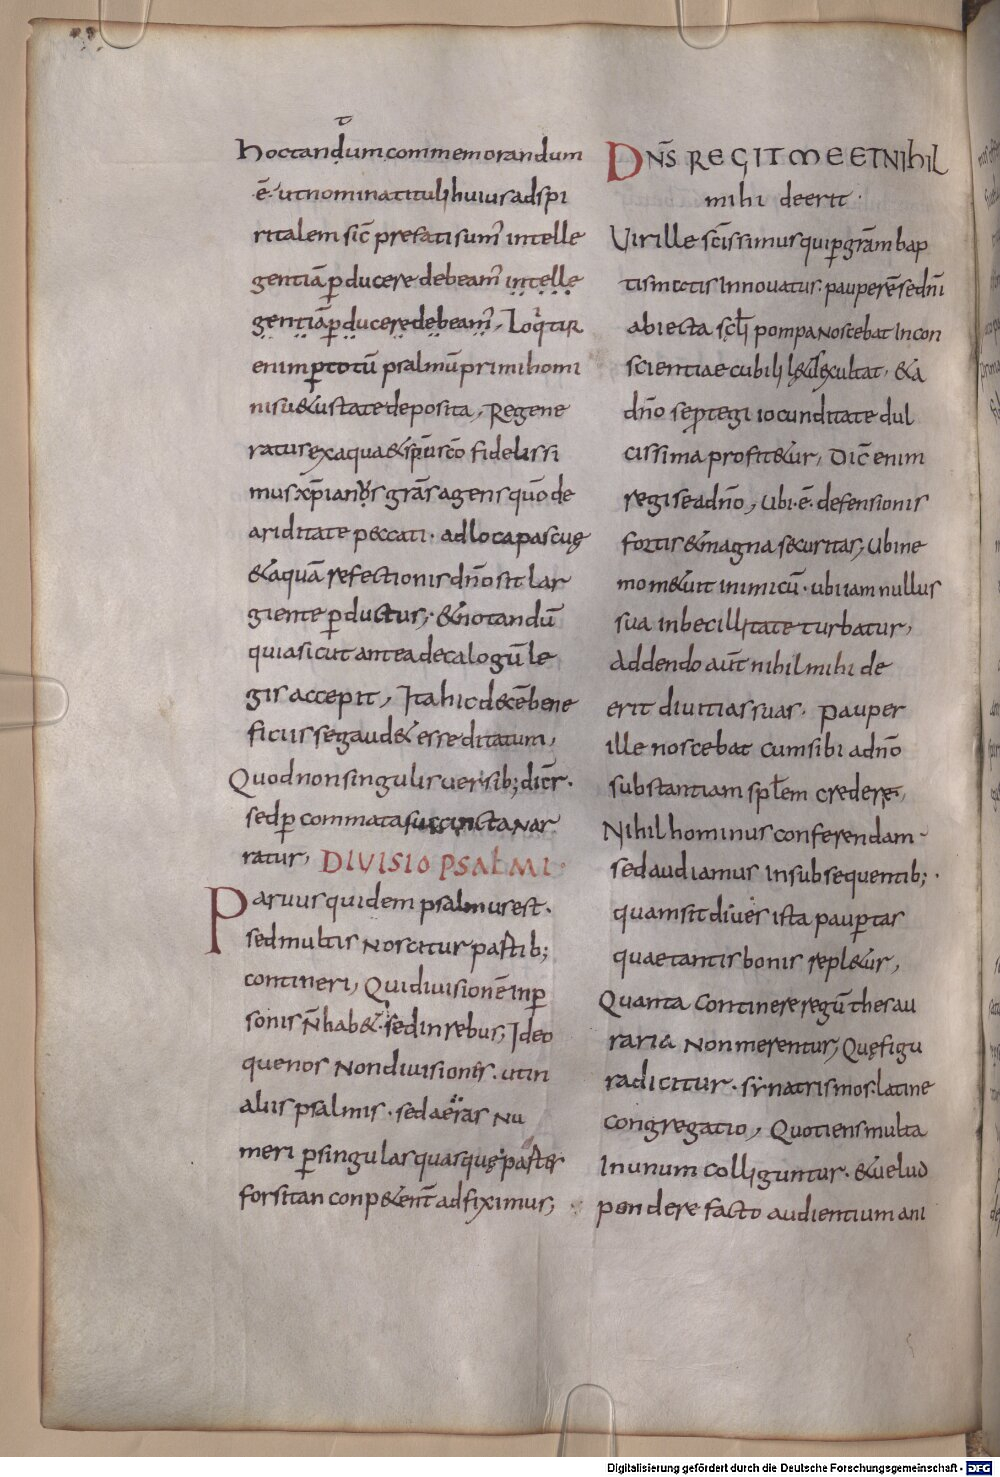 hoctandum commemorandum
ē. ut nomina tituli huius ad spi
ritalem sic̄ prefati sum᾽ intelle
gentiā ꝑducere debeam᾽ intelle
gentiā ꝑducere debeam᾽, Loqͥtur
enim ꝑ totū psalmū primi homi
nis u&ustate deposita, Regene
ratus ex aqua & sp̄u sc̄o fidelissi
mus xp̄ianus grās agens quōde
ariditate peccati. ad loca pascuę
& aquā refectionis dn̄o sit lar
giente ꝑductus; & notandū
quia sicut antea decalogū le
gis accepit, Ita hic decē bene
ficiis se gaud& esse ditatum,
Quod non singulis uersib; dicr̄.
sed ꝑ commata succincta nar
ratur, DIVISIO PSALMI
Paruus quidem psalmus est.
sed multis noscitur pastib;
contineri, Qui diuisionē in ꝑ
sonis n̄ hab&. sed in rebus, Ideo
que nos non diuisiones. ut in
aliis psalmis. sed aeras nu
meri ꝑ singulas quasque partes
forsitan conpetent̄ ad fiximus;
DN̄S REGIT ME ET NIhIL
mihi deerit.
Vir ille sc̄issimus qui ꝑ grām bap
tismatis Innouatus. pauperē se dn̄i
abiecta scl̄i pompa noscebat In con
scientiae cubili l&us exultat. & a
dn̄o se ꝑtegi iocunditate dul
cissima profit&ur, Dic̄ enim
regi se a dn̄o, Ubi .ē. defensionis
fortis & magna securitas, Ubi ne
mo m&uit inimicū. ubi iam nullus
sua inbecillitate turbatur,
Addendo aūt nihil mihi de
erit diuitias suas. pauper
ille noscebat cum sibi a dn̄o
substantiam spl̄em credere,
Nihilhominus conferendam.
sed audiamus In subsequentib;.
quam sit diues ista pauꝑtas
quae tantis bonis repl&ur,
Quanta Continere regū thesau
raria Non merentur, Quę figu
ra dicitur. synatrismos. latine
congregatio, Quotiens multa
In unum colliguntur. & uelud
pondere facto audientium ani
Digitalisierung gefördert durch die Deutsche Forschungsgemeinschaft - DFG